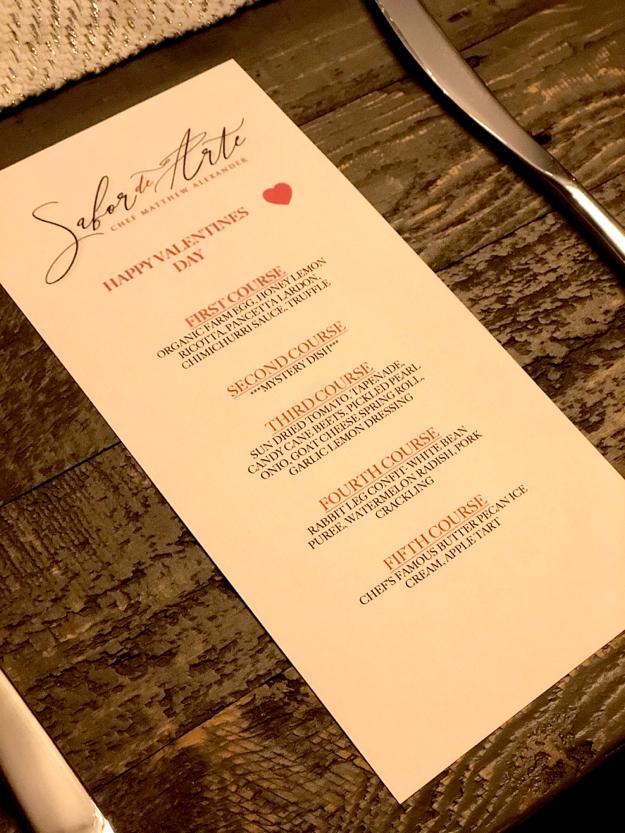 Sabor de Arte
CHEF MATTHEW ALEXANDER
HAPPY VALENTINES
DAY
FIRST COURSE
ORGANIC FARM EGG, HONEY LEMON
RICOTTA, PANCETTA LARDON,
CHIMICHURRI SAUCE, TRUFFLE
SECOND COURSE
***MYSTERY DISH***
THIRD COURSE
SUN DRIED TOMATO, TAPENADE
CANDY CANE BEETS, PICKLED PEARL
ONIO, GOAT CHEESE SPRING ROLL,
GARLIC LEMON DRESSING
FOURTH COURSE
RABBIT LEG CONFIT, WHITE BEAN
PUREE, WATERMELON RADISH, PORK
CRACKLING
FIFTH COURSE
CHEF'S FAMOUS BUTTER PECAN ICE
CREAM, APPLE TART